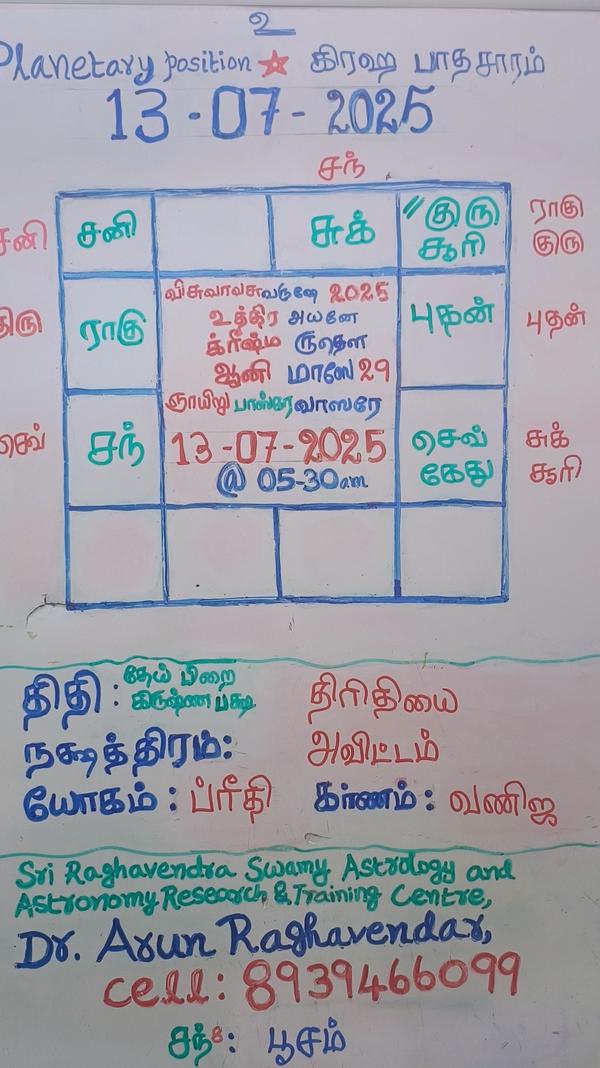 உ
Planetary position கிரஹ பாதசாரம்
13-07-2025
சந்
சனி சனி சுக் "குரு சூரி ராகு குரு
விசுவாவசுவருஷே 2025
உத்திர அயனே
க்ரீஷ்ம ருதௌ
ஆனி மாஸே 29
ஞாயிறு பாஸ்கரவாஸரே
13-07-2025
@ 05-30am
ராகு புதன் புதன்
செவ் சந் செவ் கேது சுக் சூரி
திதி: தேய் பிறை கிருஷ்ண பக்ஷ திரிதியை
நக்ஷத்திரம்: அவிட்டம்
யோகம்: ப்ரீதி கர்ணம்: வணிஜ
Sri Raghavendra Swamy Astrology and
Astronomy Research & Training Centre,
Dr. Arun Raghavendar,
cell: 8939466099
சந்8: பூசம்